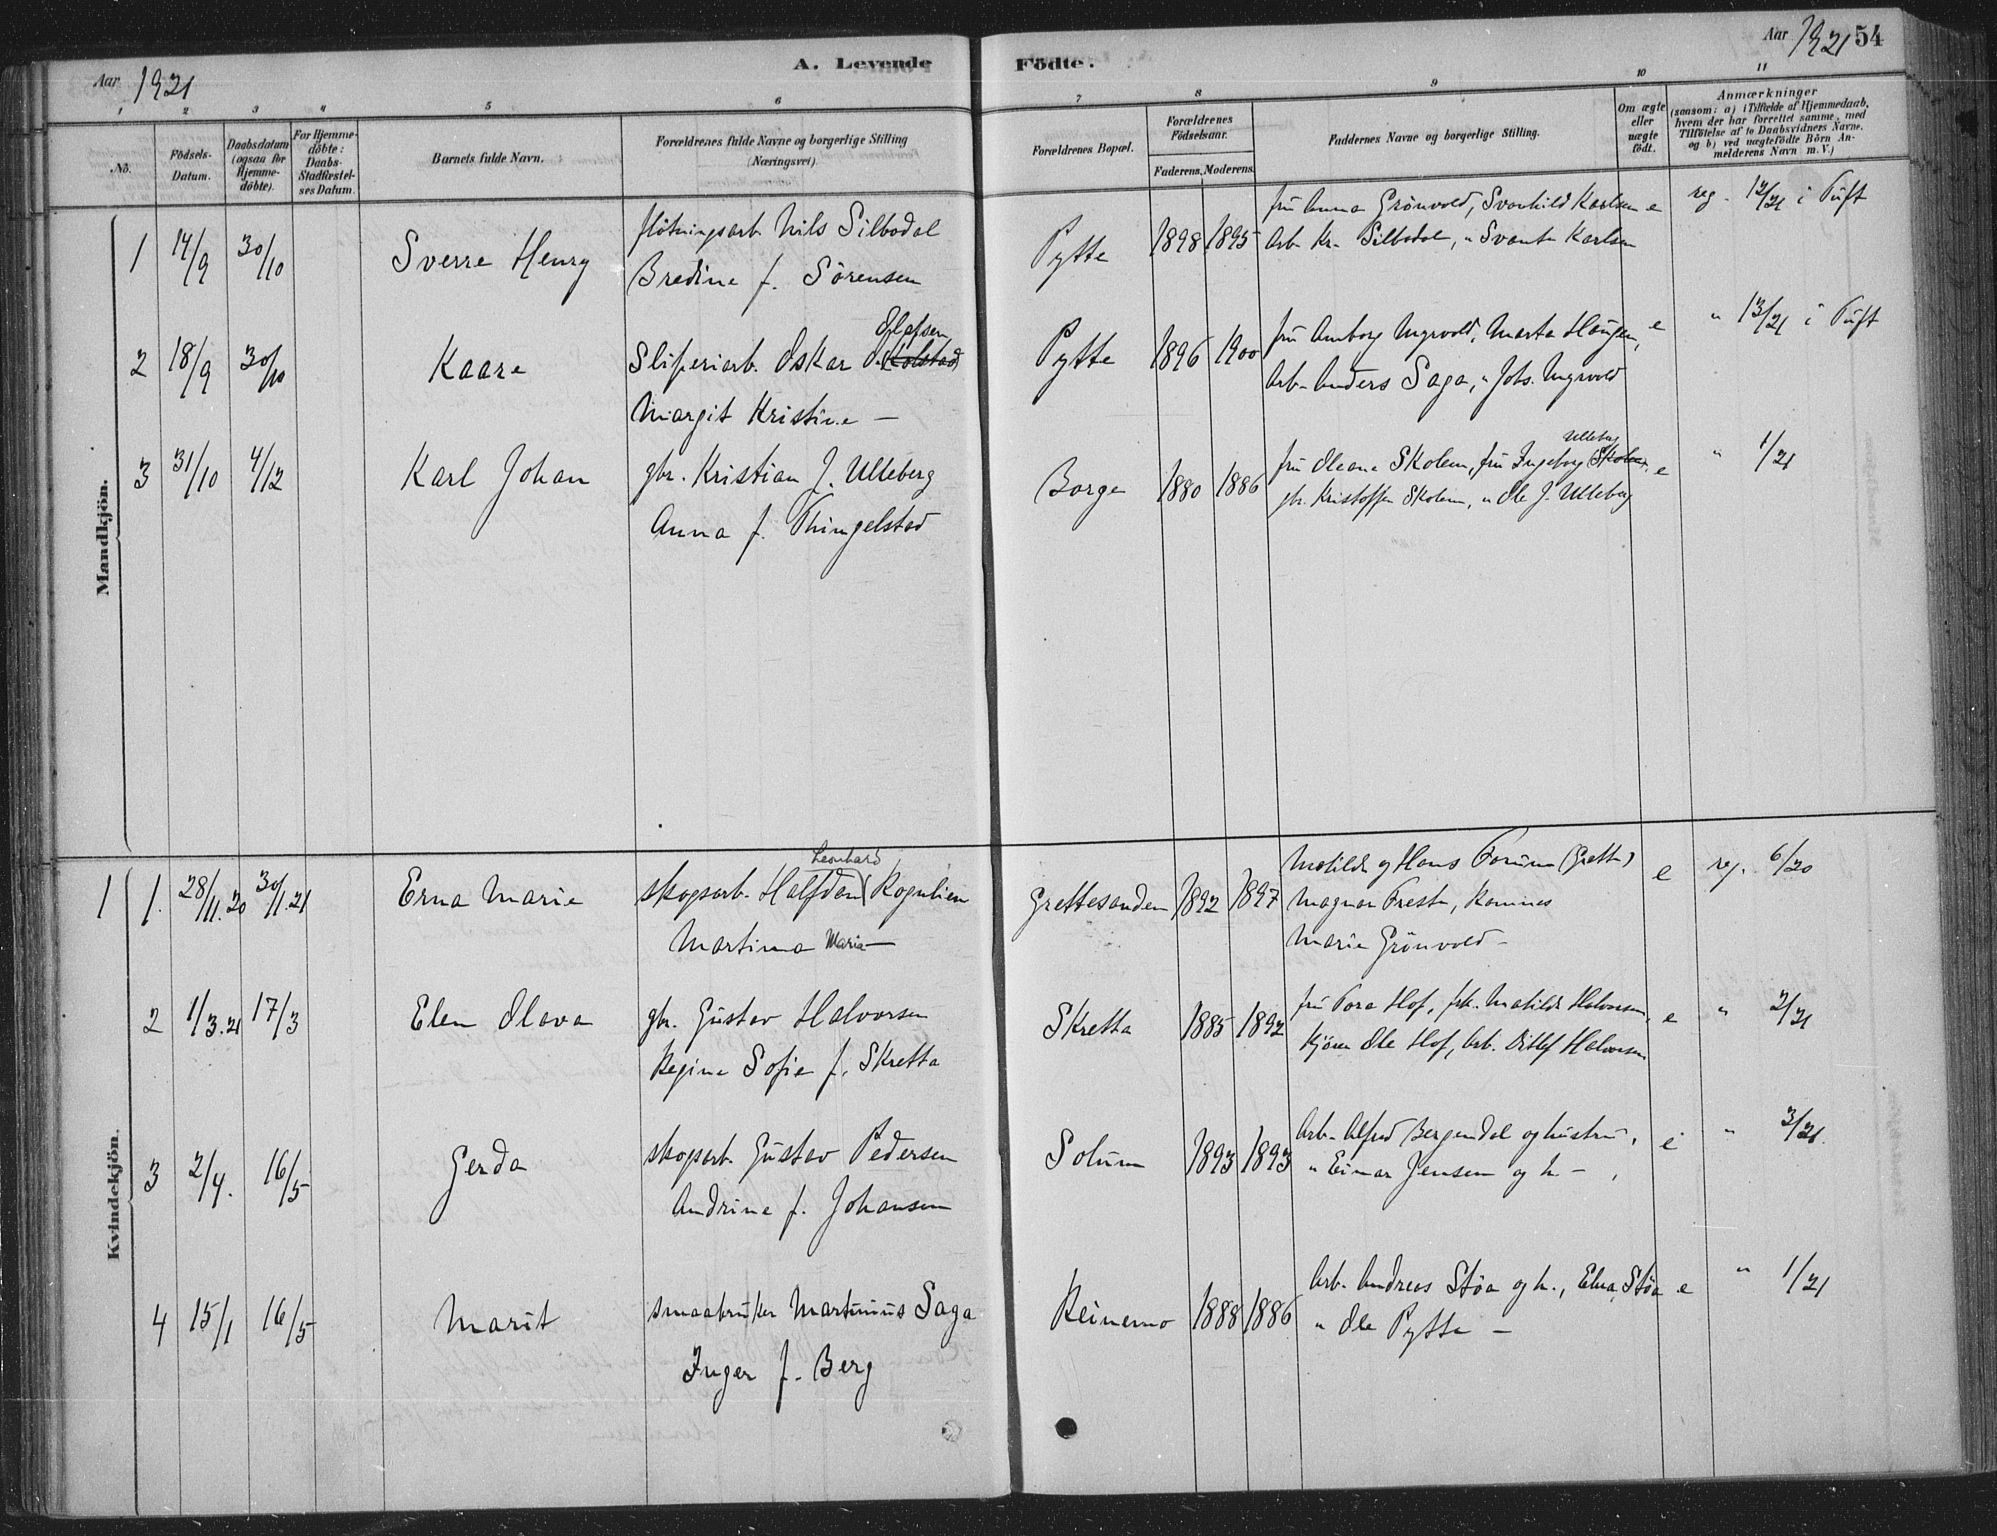 Aar 1921
A. Levende Födte.
Aar 1921 54
1 2 3 4 5 6 7 8 9 10 11
No.
Födsels-
Datum.
Daabsdatum
(ogsaa for
Hjemme-
döbte).
For Hjemme-
döbte:
Daabs-
Stadfæstel-
ses Datum.
Barnets fulde Navn.
Forældrenes fulde Navne og borgerlige Stilling
(Næringsvei).
Forældrenes Bopæl.
Forældrenes
Födselsaar.
Faderens. Moderens.
Faddernes Navne og borgerlige Stilling.
Om ægte
eller
uægte
födt.
Anmærkninger
(saasom: a) i Tilfælde af Hjemmedaab,
hvem der har forrettet samme, med
Tilföielse af to Daabsvidners Navne,
og b) ved uægtefödte Börn An-
melderens Navn m. V.)
Mandkjön.
1 14/9 30/10 Sverre Henry flötningsarb. Nils Silbodal Pytte 1898 1895 fru Anna Grönvold, Svanhild Karlsen e reg. 12/21 i Tuft
Bredine f. Sörensen arb. Kr. Silbodal, " Svante Karlsen
Olafsen
2 18/9 30/10 Kaare Sliperiarb. Oskar O. Kolstad Pytte 1896 1900 fru Amborg Myrvold, Marta Haugen, e " 13/21 i Tuft
Margit Kristine — arb. Anders Saga, " Johs. Myrvold
Ulleberg
3 31/10 4/12 Karl Johan gbr. Kristian J. Ulleberg Borge 1880 1886 fru Oleane Skolem, fru Ingeborg Skolem, e " 1/21
Anna f. Thingelstad gbr. Kristoffer Skolem, " Ole J. Ulleberg
Kvindekjön.
Leonhard
1 1. 28/11.20 30/1.21 Erna Marie skogsarb. Halfdan Rognlien Grettesanden 1892 1897 Matilde og Hans Forum (Grette) e reg. 6/20
Martina Maria — Magnar Freste, Komnes
Marie Grönvold —
2 1/3.21 17/3 Elen Olava gbr. Gustav Halvorsen Skretta 1885 1892 fru Tora Hof, frk. Matilde Halvorsen, e " 2/21
Regine Sofie f. Skretta kjörer Ole Hof, arb. Ditlef Halvorsen
3 2/4. 16/5 Gerda skogsarb. Gustav Pedersen Solum 1893 1893 Arb. Alfred Bergendal og hustru, e " 3/21.
Andrine f. Johansen " Einar Jensen og h —,
4 15/1 16/5 Marit smaabruker Martinius Saga Reinemo 1888 1886 Arb. Andreas Støa og h., Elna Støa e " 1/21
Inger f. Berg " Ole Pytte —